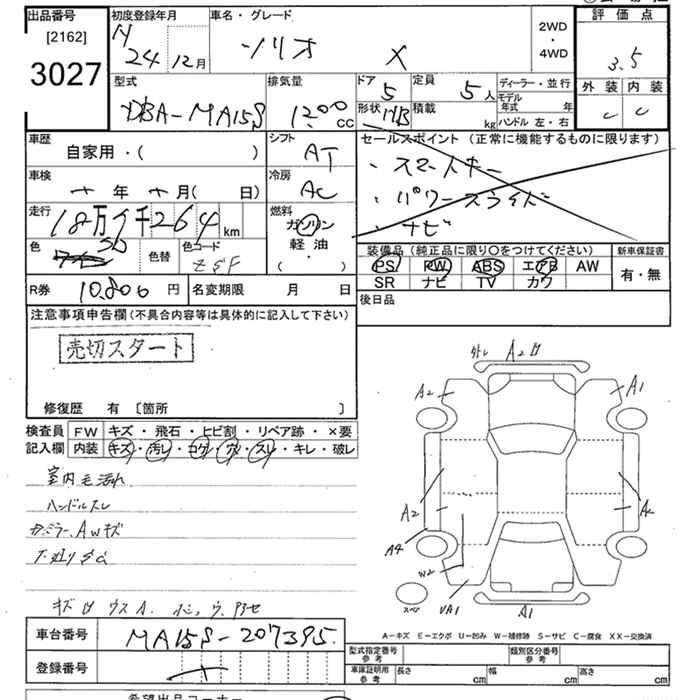 出品番号
[2162]
3027
初度登録年月
H 24年 12月
車名・グレード
ソリオ X
2WD
・
4WD
評価点
3.5
外装 内装
C C
型式
DBA-MA15S
排気量
1200 CC
ドア 5
形状 HB
定員 5人
積載 kg
ディーラー・並行
モデル年式 年
ハンドル 左・右
車歴
自家用・( )
シフト
AT
セールスポイント (正常に機能するものに限ります)
・スマートキー
・パワースライド
・ナビ
車検
年 月( 日)
冷房
AC
走行
18万 千264 km
燃料
ガソリン
軽油・
( )
色
色替
色コード
ZSF
装備品(純正品に限り〇をつけてください)
PS PW ABS エアB AW
SR ナビ TV カワ
新車保証書
有・無
R券 10,800円
名変期限 月 日
後日品
注意事項申告欄(不具合内容等は具体的に記入して下さい)
売切スタート
修復歴 有 〔箇所 〕
検査員記入欄
FW キズ・飛石・ヒビ割・リペア跡・×要
内装 キズ・汚レ・コゲ・穴・スレ・キレ・破レ
室内毛汚れ
ハンドルスレ
A2
A2
A1
A2
A4
W2
UA1
A1
スペア
A-キズ E-エクボ U-凹み W-補修跡 S-サビ C-腐食 XX-交換済
車台番号 MA15S-207395
登録番号
型式指定番号 参考
類別区分番号 参考
車庫証明用 参考
長さ cm
幅 cm
高さ cm
希望出品コーナー